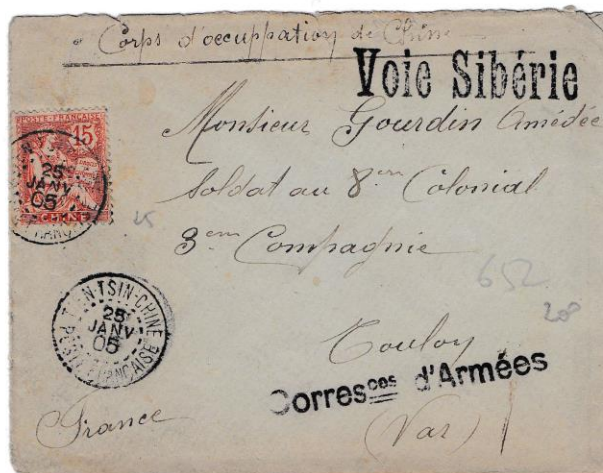 Corps d'occuppation de Chine
Voie Sibérie
POSTE FRANÇAISE
15
25
JANV
05
CHINE
Monsieur Gourdin Amédée
Soldat au 8em Colonial
3em Compagnie
652
208
TIEN-TSIN-CHINE
25
JANV
05
POSTE FRANÇAISE
Toulon
Correspces d'Armées
France
(Var)